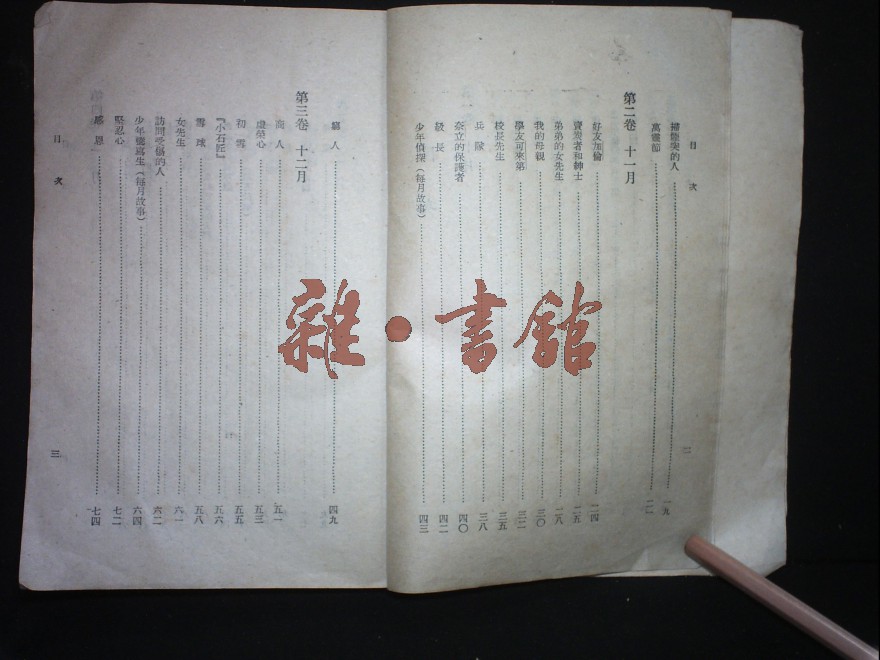 目 次
掃煙突的人 一九
萬靈節 二一
第二卷 十一月
好友加倫 二四
賣炭者和紳士 二五
弟弟的女先生 二八
我的母親 三〇
學友可來第 三二
校長先生 三五
兵 隊 三八
奈立的保護者 四〇
級 長 四二
少年偵探(每月故事) 四三
二
窮 人 四九
第三卷 十二月
商 人 五一
虛榮心 五三
初 雪 五五
『小石匠』 五六
雪 球 五八
女先生 六一
訪問受傷的人 六二
少年鈔寫生(每月故事) 六四
堅忍心 七二
感 恩 七四
目 次
三
雜·書館